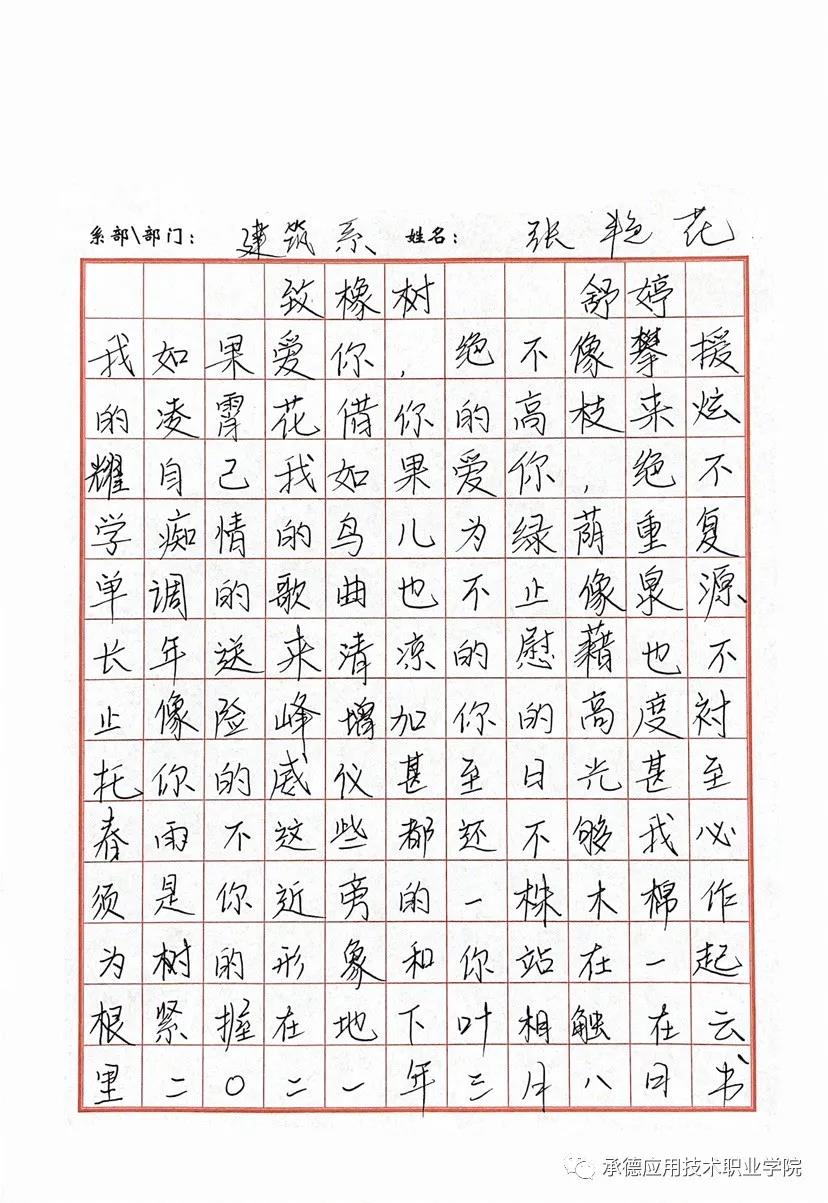 系部\部门: 建筑系 姓名: 张艳花
致橡树 舒婷
我如果爱你,绝不像攀援
的凌霄花借你的高枝来炫
耀自己我如果爱你,绝不
学痴情的鸟儿为绿荫重复
单调的歌曲也不止像泉源
长年送来清凉的慰藉也不
止像险峰增加你的高度衬
托你的威仪甚至日光甚至
春雨不这些都还不够我必
须是你近旁的一株木棉作
为树的形象和你站在一起
根紧握在地下叶相触在云
里二〇二一年三月八日书
承德应用技术职业学院